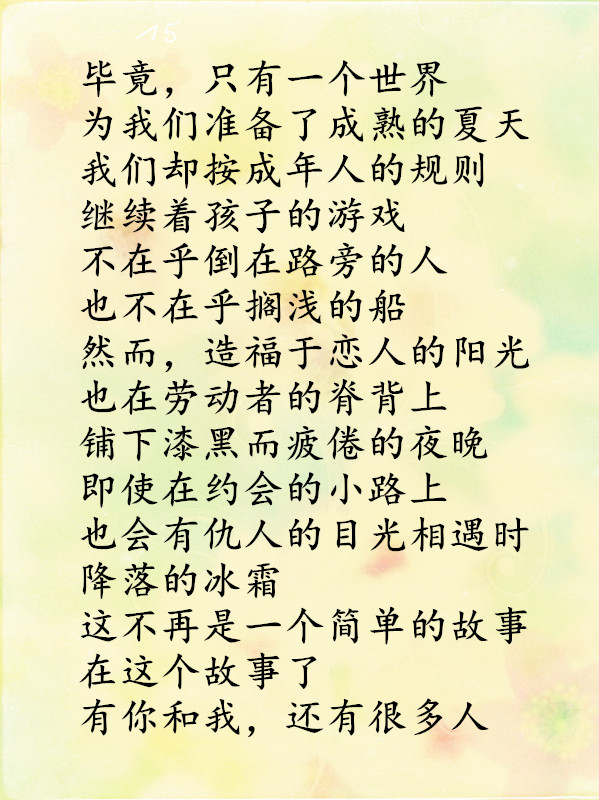 15
毕竟，只有一个世界
为我们准备了成熟的夏天
我们却按成年人的规则
继续着孩子的游戏
不在乎倒在路旁的人
也不在乎搁浅的船
然而，造福于恋人的阳光
也在劳动者的脊背上
铺下漆黑而疲倦的夜晚
即使在约会的小路上
也会有仇人的目光相遇时
降落的冰霜
这不再是一个简单的故事
在这个故事了
有你和我，还有很多人